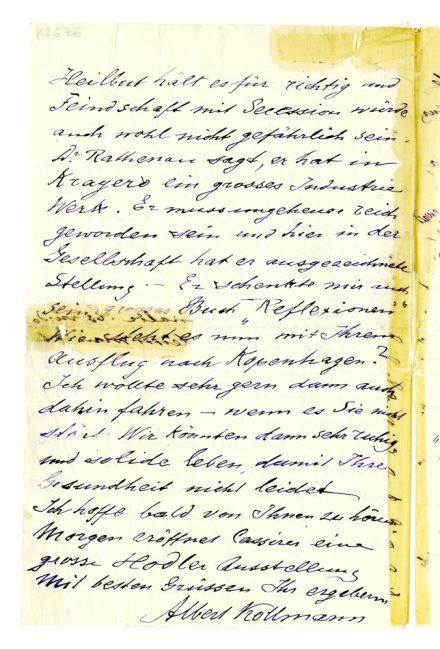 K2676
Heilbut hält es für richtig und
Feindschaft mit Secession würde
auch wohl nicht gefährlich sein.
Dr Rathenau sagt, er hat in
Kragerö ein grosses Industrie
Werk. Er muss ungeheuer reich
geworden sein und hier in der
Gesellschaft hat er ausgezeichnete
Stellung. – Er schenkte mir auch
sein grosses Buch „Reflexionen“
Wie steht es nun mit Ihrem
Ausflug nach Kopenhagen?
Ich wollte sehr gern dann auch
dahin fahren – wenn es Sie nicht
stört Wir könnten dann sehr ruhig
und solide leben, damit Ihre
Gesundheit nicht leidet
Ich hoffe bald von Ihnen zu hören
Morgen eröffnet Cassirer eine
grosse Hodler Ausstellung
Mit besten Grüssen Ihr ergebener
Albert Kollmann